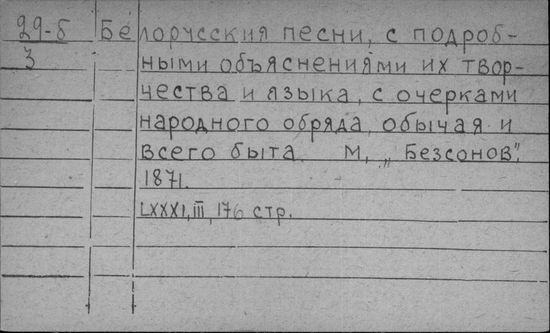 29-б Белорусския песни, с подроб-
3 ными объяснениями их твор-
чества и языка, с очерками
народного обряда, обычая и
всего быта. М, „Безсонов".
1871.
LXXXI, III, 176 стр.